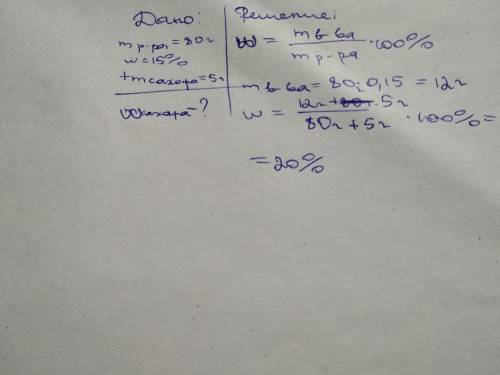 Дано:
m р-ра = 80г
w = 15%
+m сахара = 5г
w сахара - ?
Решение:
w = m в-ва / m р-ра · 100%
m в-ва = 80г · 0,15 = 12г
w = 12г + 5г / 80г + 5г · 100% =
= 20%